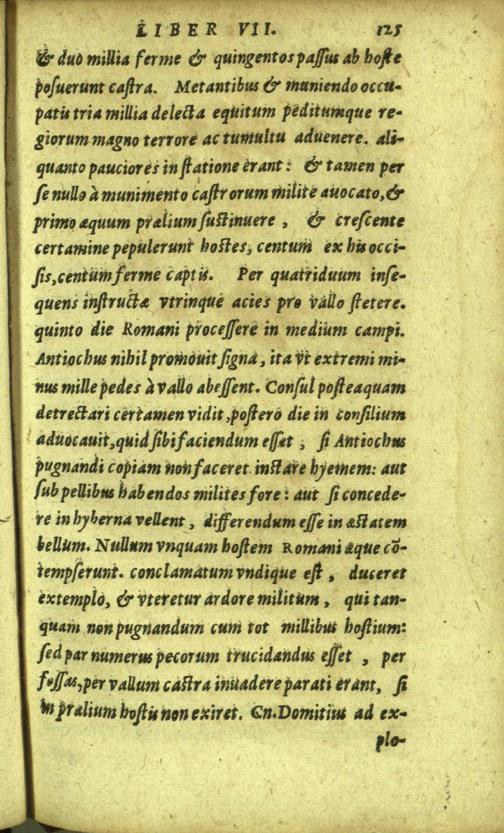 LIBER VII. 125
& duo millia ferme & quingentos passus ab hoste
posuerunt castra. Metantibus & muniendo occu-
patis tria millia delecta equitum peditumque re-
giorum magno terrore ac tumultu aduenere. ali-
quanto pauciores in statione erant: & tamen per
se nullo à munimento castrorum milite auocato, &
primo æquum prælium sustinuere, & crescente
certamine pepulerunt hostes, centum ex his occi-
sis, centum ferme captis. Per quatriduum inse-
quens instructæ vtrinque acies pro vallo stetere.
quinto die Romani processere in medium campi.
Antiochus nihil promouit signa, ita vt extremi mi-
nus mille pedes à vallo abessent. Consul posteaquam
detrectari certamen vidit, postero die in consilium
aduocauit, quid sibi faciendum esset, si Antiochus
pugnandi copiam non faceret. instare hyemem: aut
sub pellibus habendos milites fore: aut si concede-
re in hyberna vellent, differendum esse in æstatem
bellum. Nullum vnquam hostem Romani æque cō-
tempserunt. conclamatum vndique est, duceret
extemplo, & vteretur ardore militum, qui tan-
quam non pugnandum cum tot millibus hostium:
sed par numerus pecorum trucidandus esset, per
fossas, per vallum castra inuadere parati erant, si
in prælium hostis non exiret. Cn. Domitius ad ex-
plo-